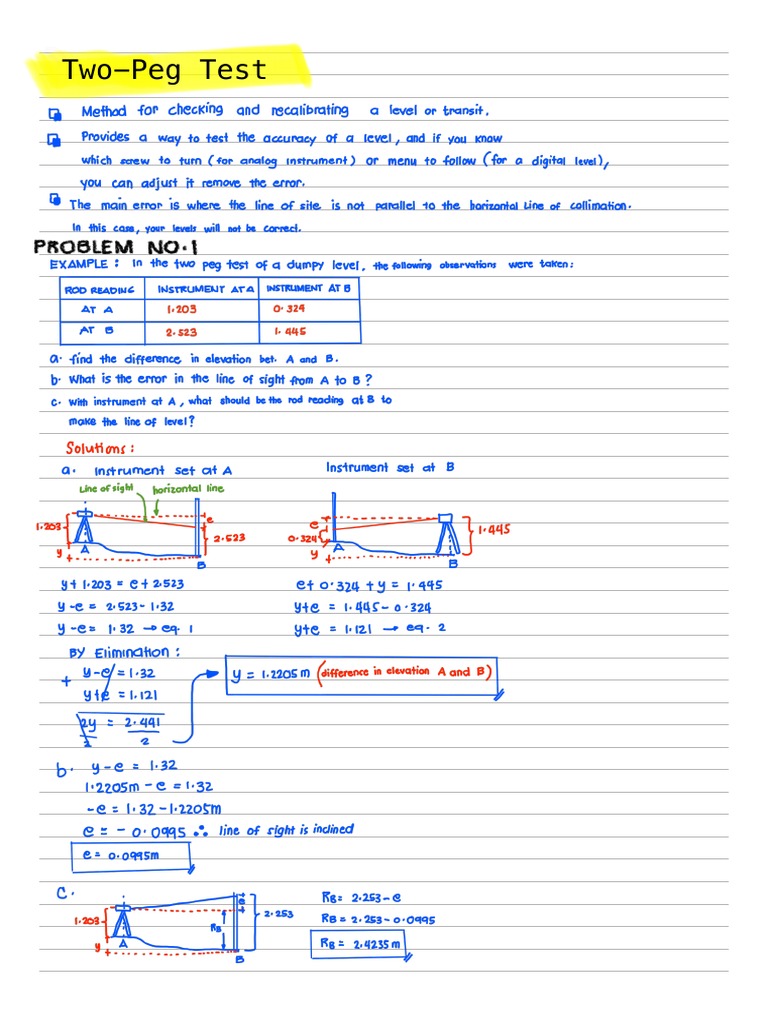 Two-Peg Test
Method for checking and recalibrating a level or transit.
Provides a way to test the accuracy of a level, and if you know
which screw to turn (for analog instrument) or menu to follow (for a digital level),
you can adjust it remove the error.
The main error is where the line of site is not parallel to the horizontal line of collimation.
In this case, your levels will not be correct.
PROBLEM NO.1
EXAMPLE: In the two peg test of a dumpy level, the following observations were taken:
ROD READING INSTRUMENT AT A INSTRUMENT AT B
AT A 1.203 0.324
AT B 2.523 1.445
a. find the difference in elevation bet. A and B.
b. What is the error in the line of sight from A to B?
c. With instrument at A, what should be the rod reading at B to
make the line of level?
Solutions:
a. Instrument set at A
Instrument set at B
Line of sight horizontal line
1.203 y A e 2.523 B
e 0.324 y A 1.445 B
y + 1.203 = e + 2.523
e + 0.324 + y = 1.445
y - e = 2.523 - 1.32
y + e = 1.445 - 0.324
y - e = 1.32 → eq. 1
y + e = 1.121 → eq. 2
BY Elimination:
+ y - e = 1.32
y + e = 1.121
2y = 2.441
2 2
y = 1.2205 m (difference in elevation A and B)
b. y - e = 1.32
1.2205m - e = 1.32
-e = 1.32 - 1.2205m
e = - 0.0995 ∴ line of sight is inclined
e = 0.0995m
c.
1.203 y A RB e 2.253 B
RB = 2.253 - e
RB = 2.253 - 0.0995
RB = 2.4235 m